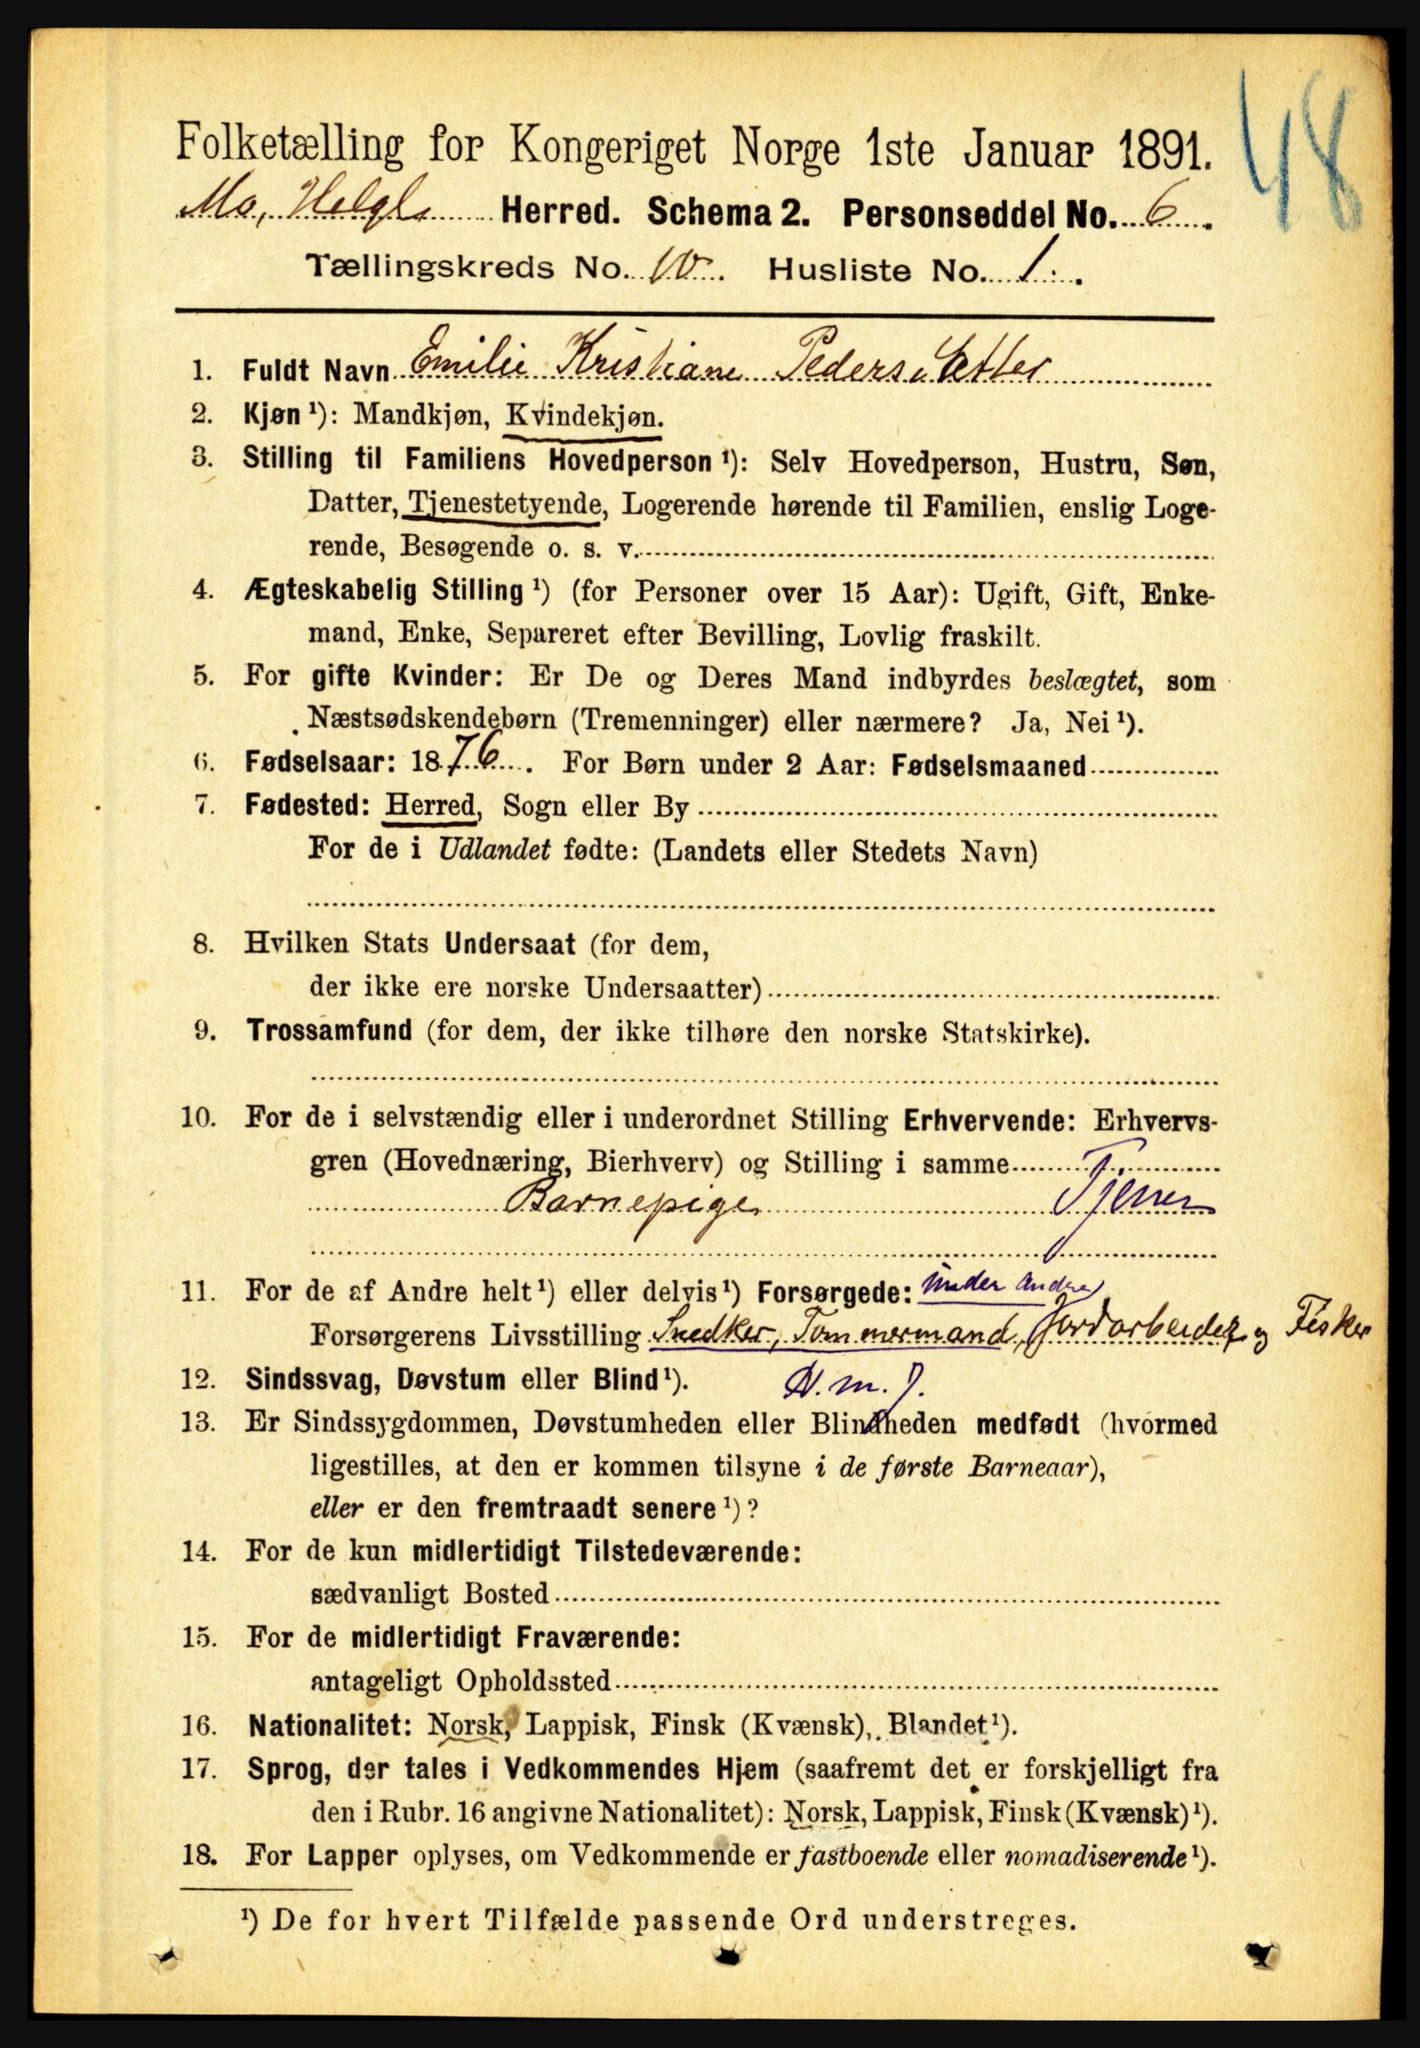 48
Folketælling for Kongeriget Norge 1ste Januar 1891.
Mo, Helgl. Herred. Schema 2. Personseddel No. 6.
Tællingskreds No. 10. Husliste No. 1.
1. Fuldt Navn Emilie Kristiane Peders
2. Kjøn ¹): Mandkjøn, Kvindekjøn.
3. Stilling til Familiens Hovedperson ¹): Selv Hovedperson, Hustru, Søn,
Datter, Tjenestetyende, Logerende hørende til Familien, enslig Loge-
rende, Besøgende o. s. v.
4. Ægteskabelig Stilling ¹) (for Personer over 15 Aar): Ugift, Gift, Enke-
mand, Enke, Separeret efter Bevilling, Lovlig fraskilt.
5. For gifte Kvinder: Er De og Deres Mand indbyrdes beslægtet, som
Næstsødskendebørn (Tremenninger) eller nærmere? Ja, Nei ¹).
6. Fødselsaar: 1876. For Børn under 2 Aar: Fødselsmaaned
7. Fødested: Herred, Sogn eller By
For de i Udlandet fødte: (Landets eller Stedets Navn)
8. Hvilken Stats Undersaat (for dem,
der ikke ere norske Undersaatter)
9. Trossamfund (for dem, der ikke tilhøre den norske Statskirke).
10. For de i selvstændig eller i underordnet Stilling Erhvervende: Erhvervs-
gren (Hovednæring, Bierhverv) og Stilling i samme
Barnepige Tjener
11. For de af Andre helt ¹) eller delvis ¹) Forsørgede: under andre
Forsørgerens Livsstilling Snedker, Tømmermand, Jordarbeider og Fisker
12. Sindssvag, Døvstum eller Blind ¹).
13. Er Sindssygdommen, Døvstumheden eller Blindheden medfødt (hvormed
ligestilles, at den er kommen tilsyne i de første Barneaar),
eller er den fremtraadt senere ¹)?
14. For de kun midlertidigt Tilstedeværende:
sædvanligt Bosted
15. For de midlertidigt Fraværende:
antageligt Opholdssted
16. Nationalitet: Norsk, Lappisk, Finsk (Kvænsk), Blandet ¹).
17. Sprog, der tales i Vedkommendes Hjem (saafremt det er forskjelligt fra
den i Rubr. 16 angivne Nationalitet): Norsk, Lappisk, Finsk (Kvænsk) ¹).
18. For Lapper oplyses, om Vedkommende er fastboende eller nomadiserende ¹).
¹) De for hvert Tilfælde passende Ord understreges.